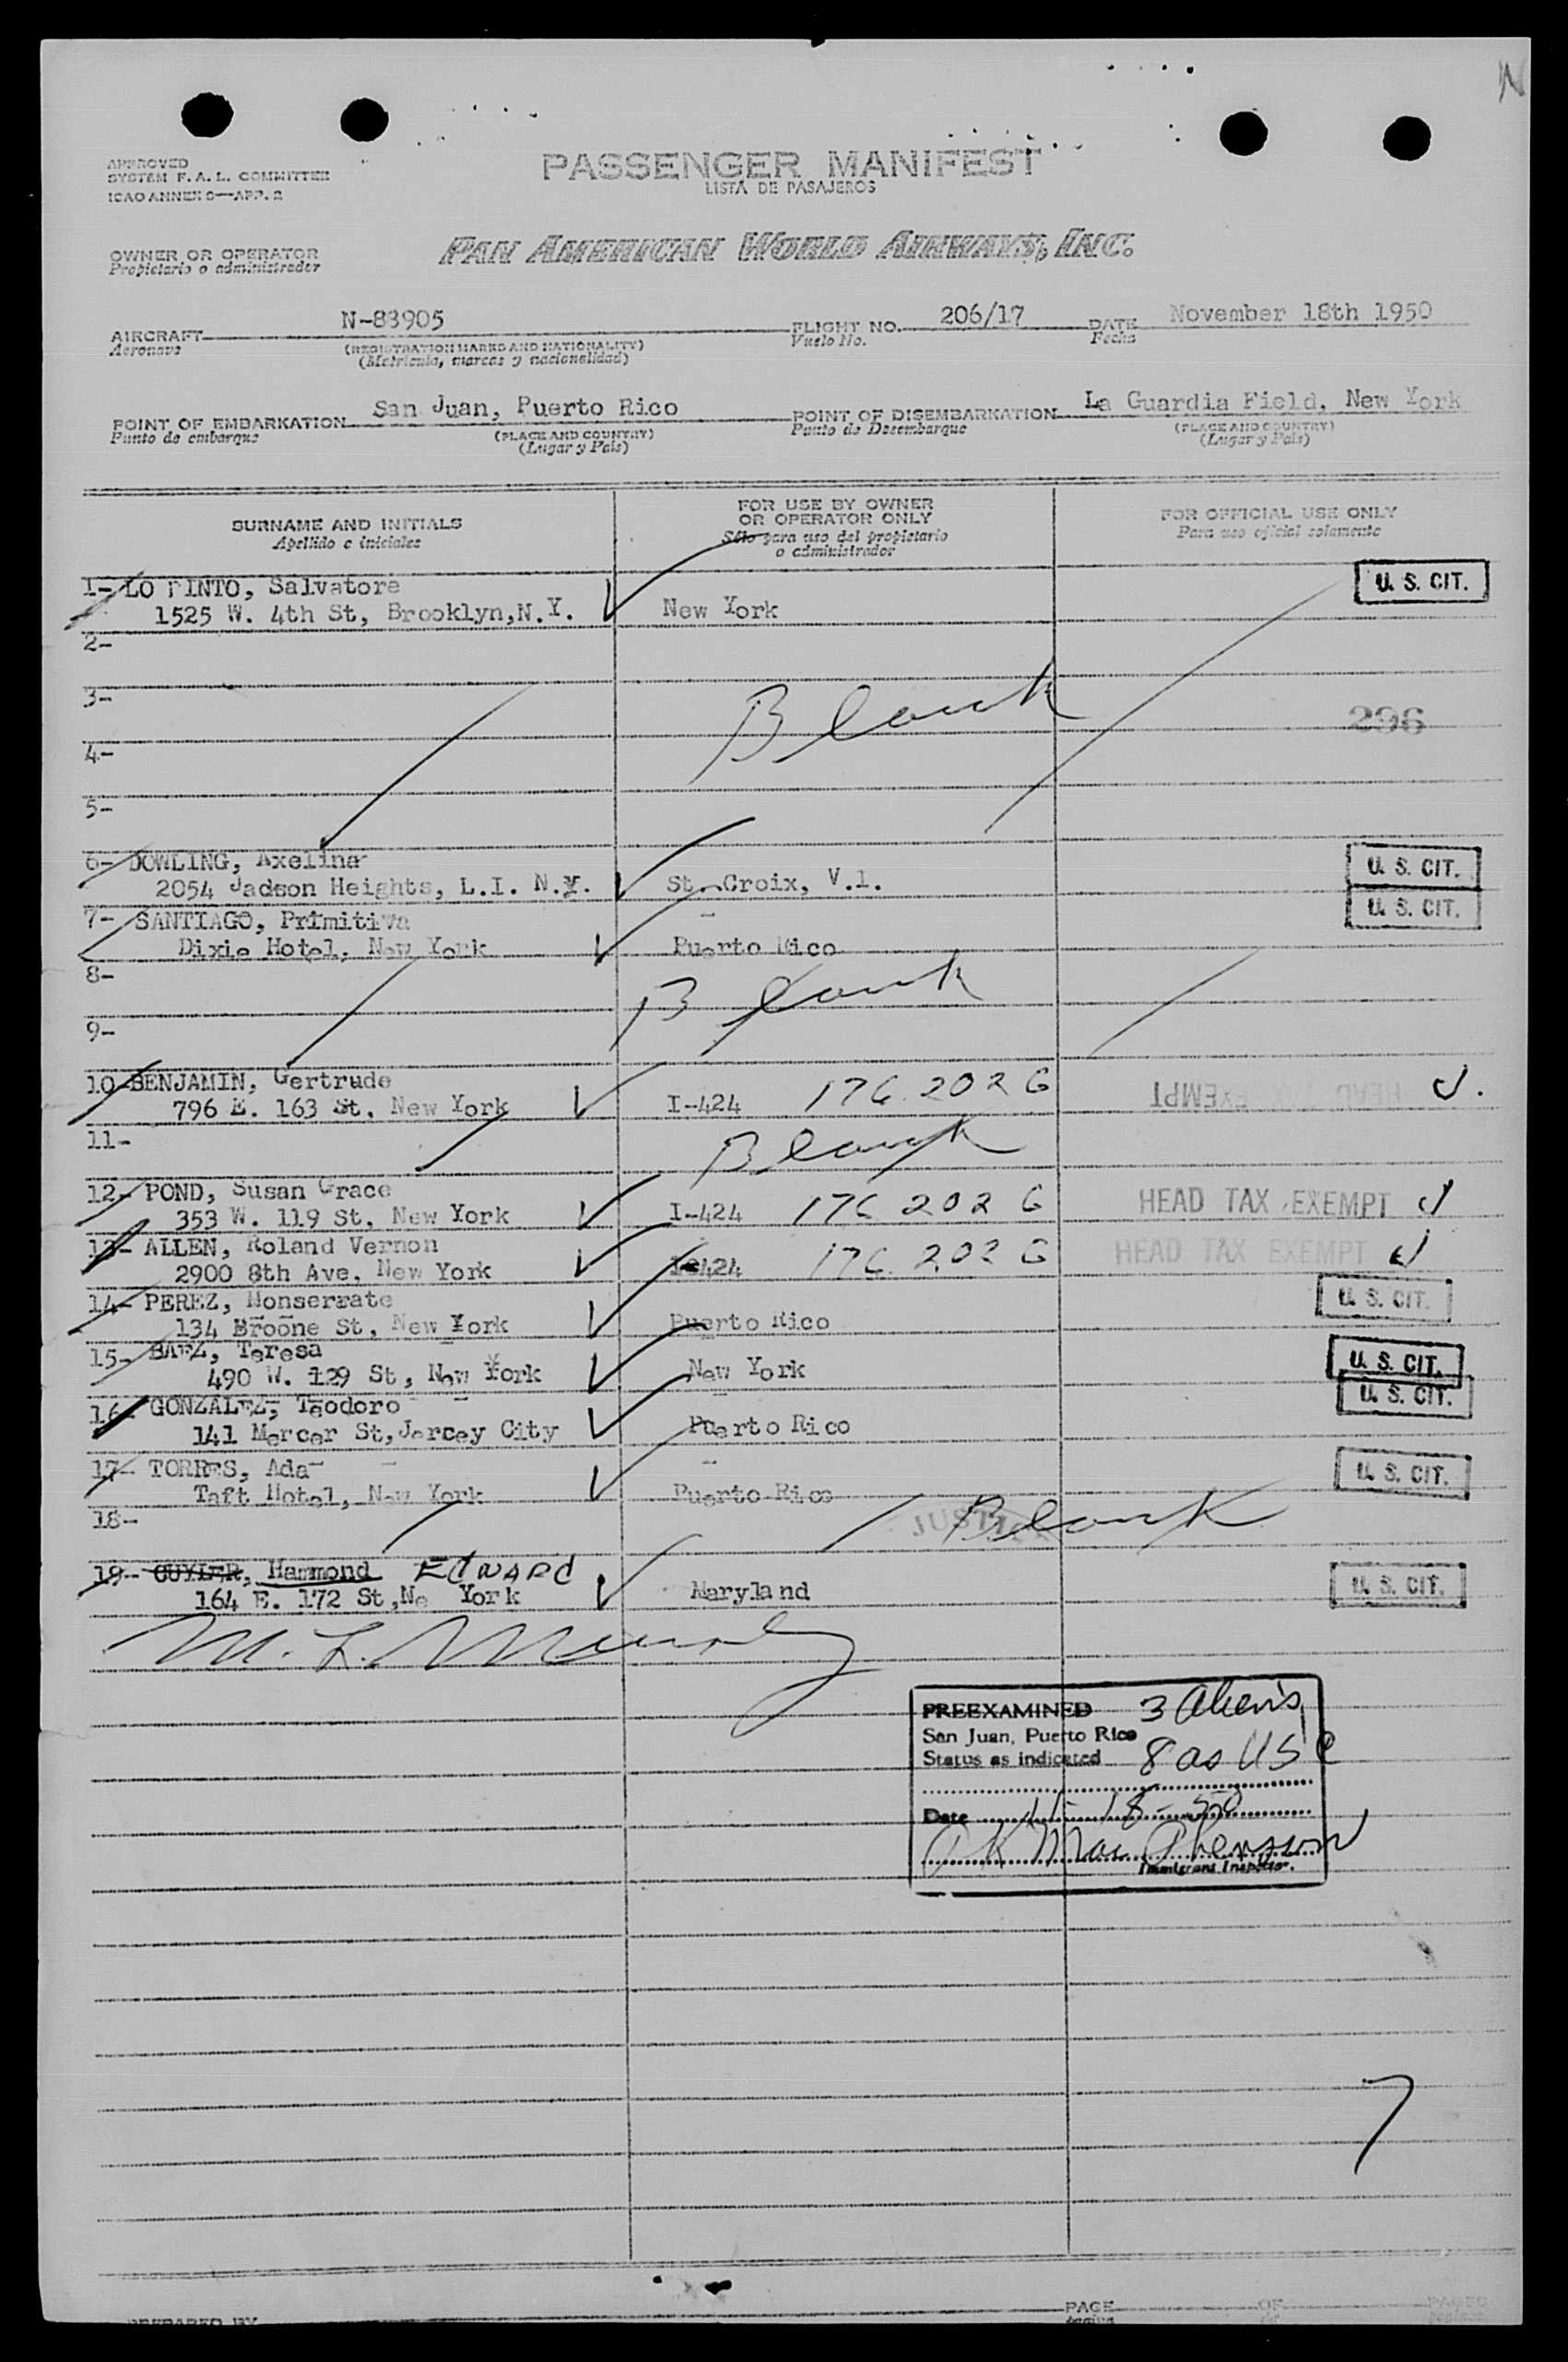 N
APPROVED
SYSTEM F. A. L. COMMITTEE
ICAO ANNEX 9—APP. 2
PASSENGER MANIFEST
LISTA DE PASAJEROS
OWNER OR OPERATOR
Propietario o administrador
PAN AMERICAN WORLD AIRWAYS, INC.
AIRCRAFT N-83905 FLIGHT NO. 206/17 DATE November 18th 1950
Aeronave (REGISTRATION MARKS AND NATIONALITY) Vuelo No. Fecha
(Matricula, marcas y nacionalidad)
POINT OF EMBARKATION San Juan, Puerto Rico POINT OF DISEMBARKATION La Guardia Field, New York
Punto de embarque (PLACE AND COUNTRY) Punto de Desembarque (PLACE AND COUNTRY)
(Lugar y Pais) (Lugar y Pais)
SURNAME AND INITIALS FOR USE BY OWNER OR OPERATOR ONLY FOR OFFICIAL USE ONLY
Apellido e iniciales Sólo para uso del propietario o administrador Para uso oficial solamente
1- LO PINTO, Salvatore U. S. CIT.
1525 W. 4th St, Brooklyn,N.Y. New York
2-
3- Blank 296
4-
5-
6- DOWLING, Axelina U. S. CIT.
2054 Jadson Heights, L.I. N.Y. St. Croix, V.I.
7- SANTIAGO, Primitiva U. S. CIT.
Dixie Hotel, New York Puerto Rico
8- Blank
9-
10-BENJAMIN, Gertrude
796 E. 163 St, New York I-424 176 202 G HEAD TAX EXEMPT
11- Blank
12- POND, Susan Grace
353 W. 119 St, New York I-424 176 202 G HEAD TAX EXEMPT
13- ALLEN, Roland Vernon
2900 8th Ave, New York I-424 176 202 G HEAD TAX EXEMPT
14- PEREZ, Monserrate U. S. CIT.
134 Broone St, New York Puerto Rico
15- BAEZ, Teresa
490 W. 129 St, New York New York U. S. CIT.
16- GONZALEZ, Teodoro U. S. CIT.
141 Mercer St,Jersey City Puerto Rico
17- TORRES, Ada U. S. CIT.
Taft Hotel, New York Puerto Rico
18- JUSTICE Blank
19- CUYLER, Hammond EDWARD U. S. CIT.
164 E. 172 St,Ne York Maryland
M. L. Murphy
PREEXAMINED 3 Aliens
San Juan, Puerto Rico
Status as indicated 8 as USC
Date 11-18-50
MacPherson
Immigrant Inspector.
7
PREPARED BY PAGE OF PAGES